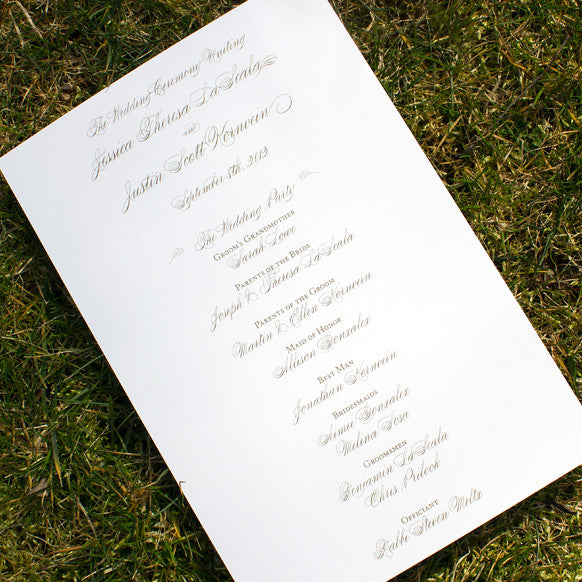 The Wedding Ceremony Uniting
Jessica Theresa LaScala
and
Justin Scott Kornvein
September 5th, 2013
The Wedding Party
Groom's Grandmother
Sarah Lowe
Parents of the Bride
Joseph & Theresa LaScala
Parents of the Groom
Martin & Ellen Kornvein
Maid of Honor
Allison Gonzalez
Best Man
Jonathan Kornvein
Bridesmaids
Aimee Gonzalez
Melina Sosa
Groomsmen
Benjamin LaScala
Chris
Officiant
Rabbi Steven Meltz